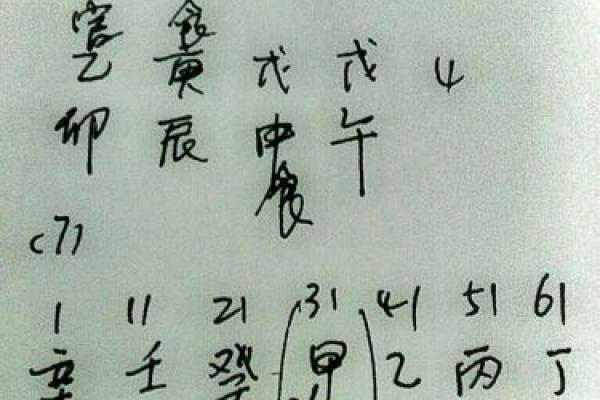 官 食
乙 庚 戊 戊 4
卯 辰 申 午
食
(7)
1 11 21 (31) 41 51 61
辛 壬 癸 甲 乙 丙 丁